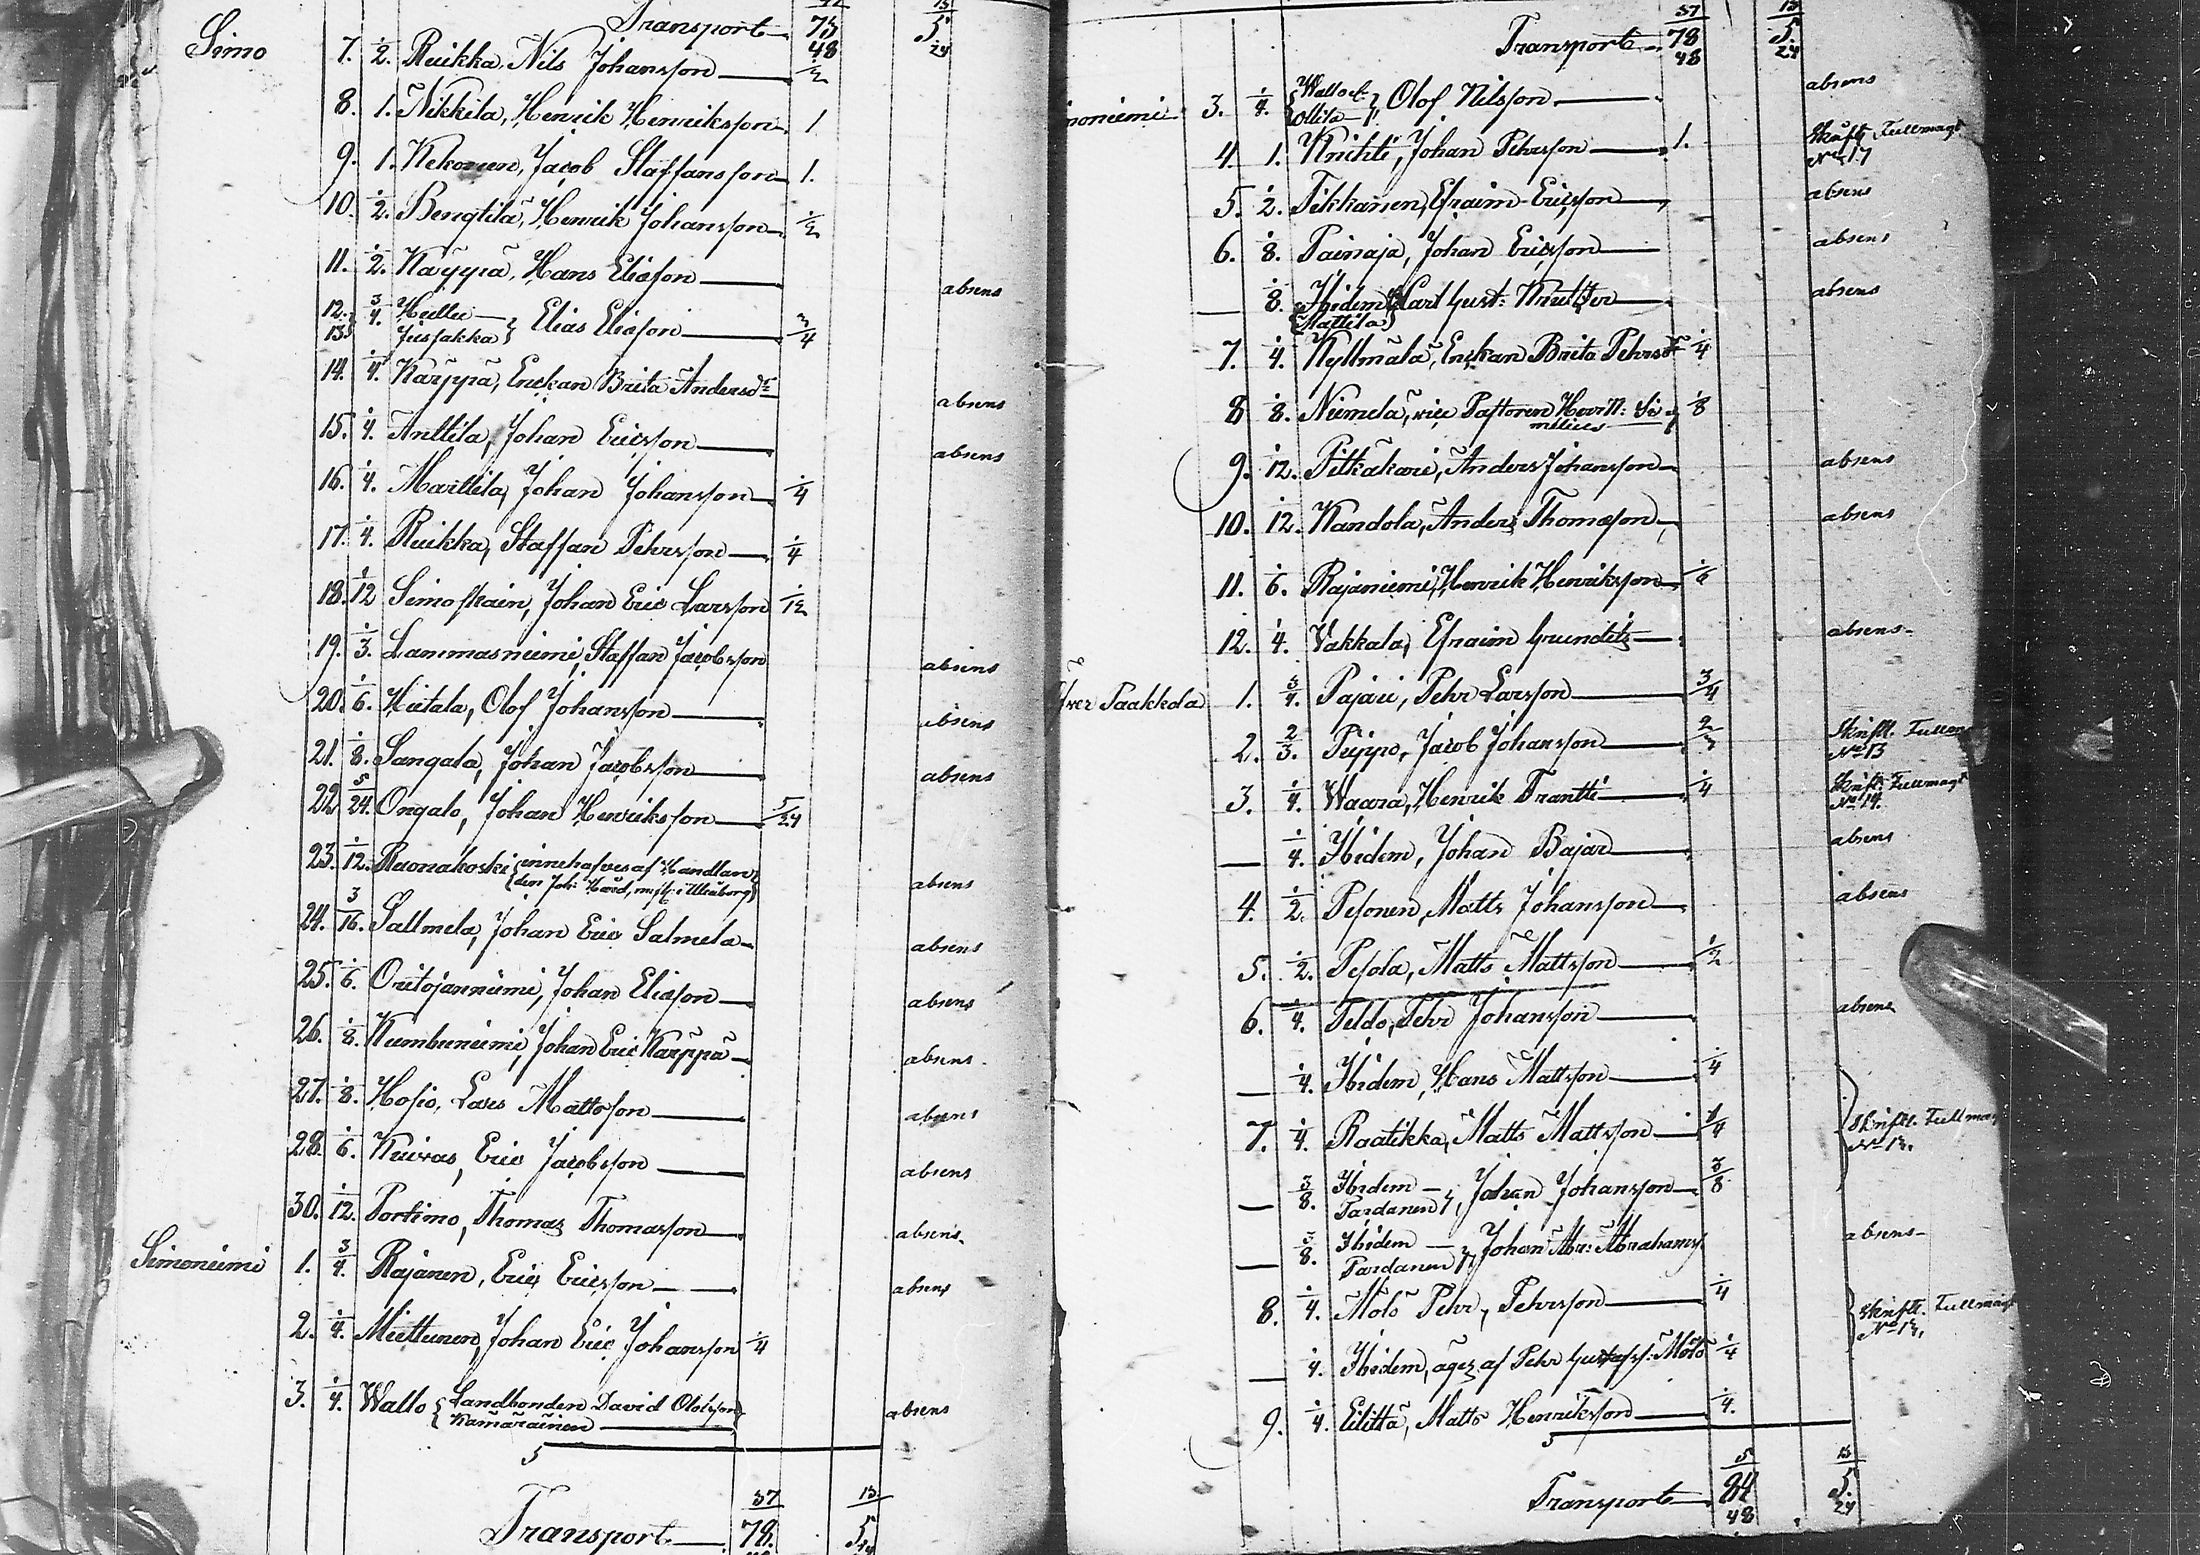 Transport 73 48 13 5 24
Simo 7. 1/2. Ruikka, Nils Johansson 1/2
8. 1. Nikkila, Henrik Henriksson 1
9. 1. Kekonen, Jacob Staffansson 1.
10. 1/2. Bengtilä, Henrik Johansson 1/2
11. 1/2. Käyyrä, Hans Eliasson absens
12. 13 3/4. Hullu Jussakka } Elias Eliasson 3/4
14. 1/4. Kärppä, Enckan Brita Andersdr absens
15. 1/4. Anttila, Johan Ericsson absens
16. 1/4. Marttila, Johan Johansson 1/4
17. 1/4. Ruikka, Staffan Pehrsson 1/4
18. 1/12 Simoskain, Johan Eric Larsson 1/12
19. 1/3. Lammasniemi, Staffan Jacobsson absens
20. 1/6. Hietala, Olof Johansson absens
21. 1/8. Sangala, Johan Jacobsson absens
22 5/24. Ongalo, Johan Henriksson 5/24
23. 1/12. Ruonakoski { innehafves af Handlan
den Joh: i Uleåborg } absens
24. 3/16. Sallmela, Johan Eric Salmela absens
25. 1/6. Oritojanniemi, Johan Eliasson absens
26. 1/8. Kumbuniemi, Johan Eric Kärppä absens
27. 1/8. Hosio, Lars Mattsson absens
28. 1/6. Kuivas, Eric Jacobsson absens
30. 1/12. Portimo, Thomas Thomasson absens
Simoniemi 1. 3/4. Rajanen, Eric Ericsson absens
2. 1/4. Miettunen, Johan Eric Johansson 1/4
3. 1/4. Wallo { Landbonden David Olofsson
Kamäräinen absens
5
Transport 37 78. 13 5 24
Transport 37 78 48 13 5. 24
moniemi 3. 1/4. { Wallo el.
Ollila } Olof Nilsson absens
4. 1. Knihti, Johan Pehrsson 1. Skriftl. Fullmagt
No 17
5. 1/2. Tikkanen, Efraim Ericsson absens
6. 1/8. Painaja, Johan Ericsson absens
1/8. Ibidem { Carl Gust: Knutzer absens
Mattila }
7. 1/4. Kyllmälä, Enckan Brita Pehrsdr 1/4
8 1/8. Niemelä, vice Pastoren 1/8
9. 1/12. Pitkäkari, Anders Johansson absens
10. 1/12. Kandola, Anders Thomasson absens
11. 1/6. Rajaniemi, Henrik Henriksson 1/6
12. 1/4. Vakkala, Efraim Grundits absens
Öfver Paakkola 1. 3/4. Pajari, Pehr Larsson 3/4
2. 2/3. Piippo, Jacob Johansson 2/3 Skriftl. Fullm
No 13
3. 1/4. Waara, Henrik Frantti 1/4 Skriftl. Fullmagt
No 14.
1/4. Ibidem, Johan Bajar absens
4. 1/2. Pesonen, Matts Johansson absens
5. 1/2. Pesola, Matts Mattsson 1/2
6. 1/4. Peldo, Pehr Johansson absens
1/4. Ibidem, Hans Mattsson 1/4
7. 1/4. Raatikka, Matts Mattsson 1/4 Skriftl. Fullmag
No 13.
3/8. Ibidem
Pardanen }, Johan Johansson 3/8
3/8. Ibidem
Pardanen }, Johan Abr: Abrahamss absens
8. 1/4. Mölö Pehr, Pehrsson 1/4 Skriftl. Fullmagt
No 13.
1/4. Ibidem, äges af Pehr Gustafss: Mölö 1/4
9. 1/4. Eilittä, Matts Henriksson 1/4.
5
Transport 5 84 48 13 5. 24